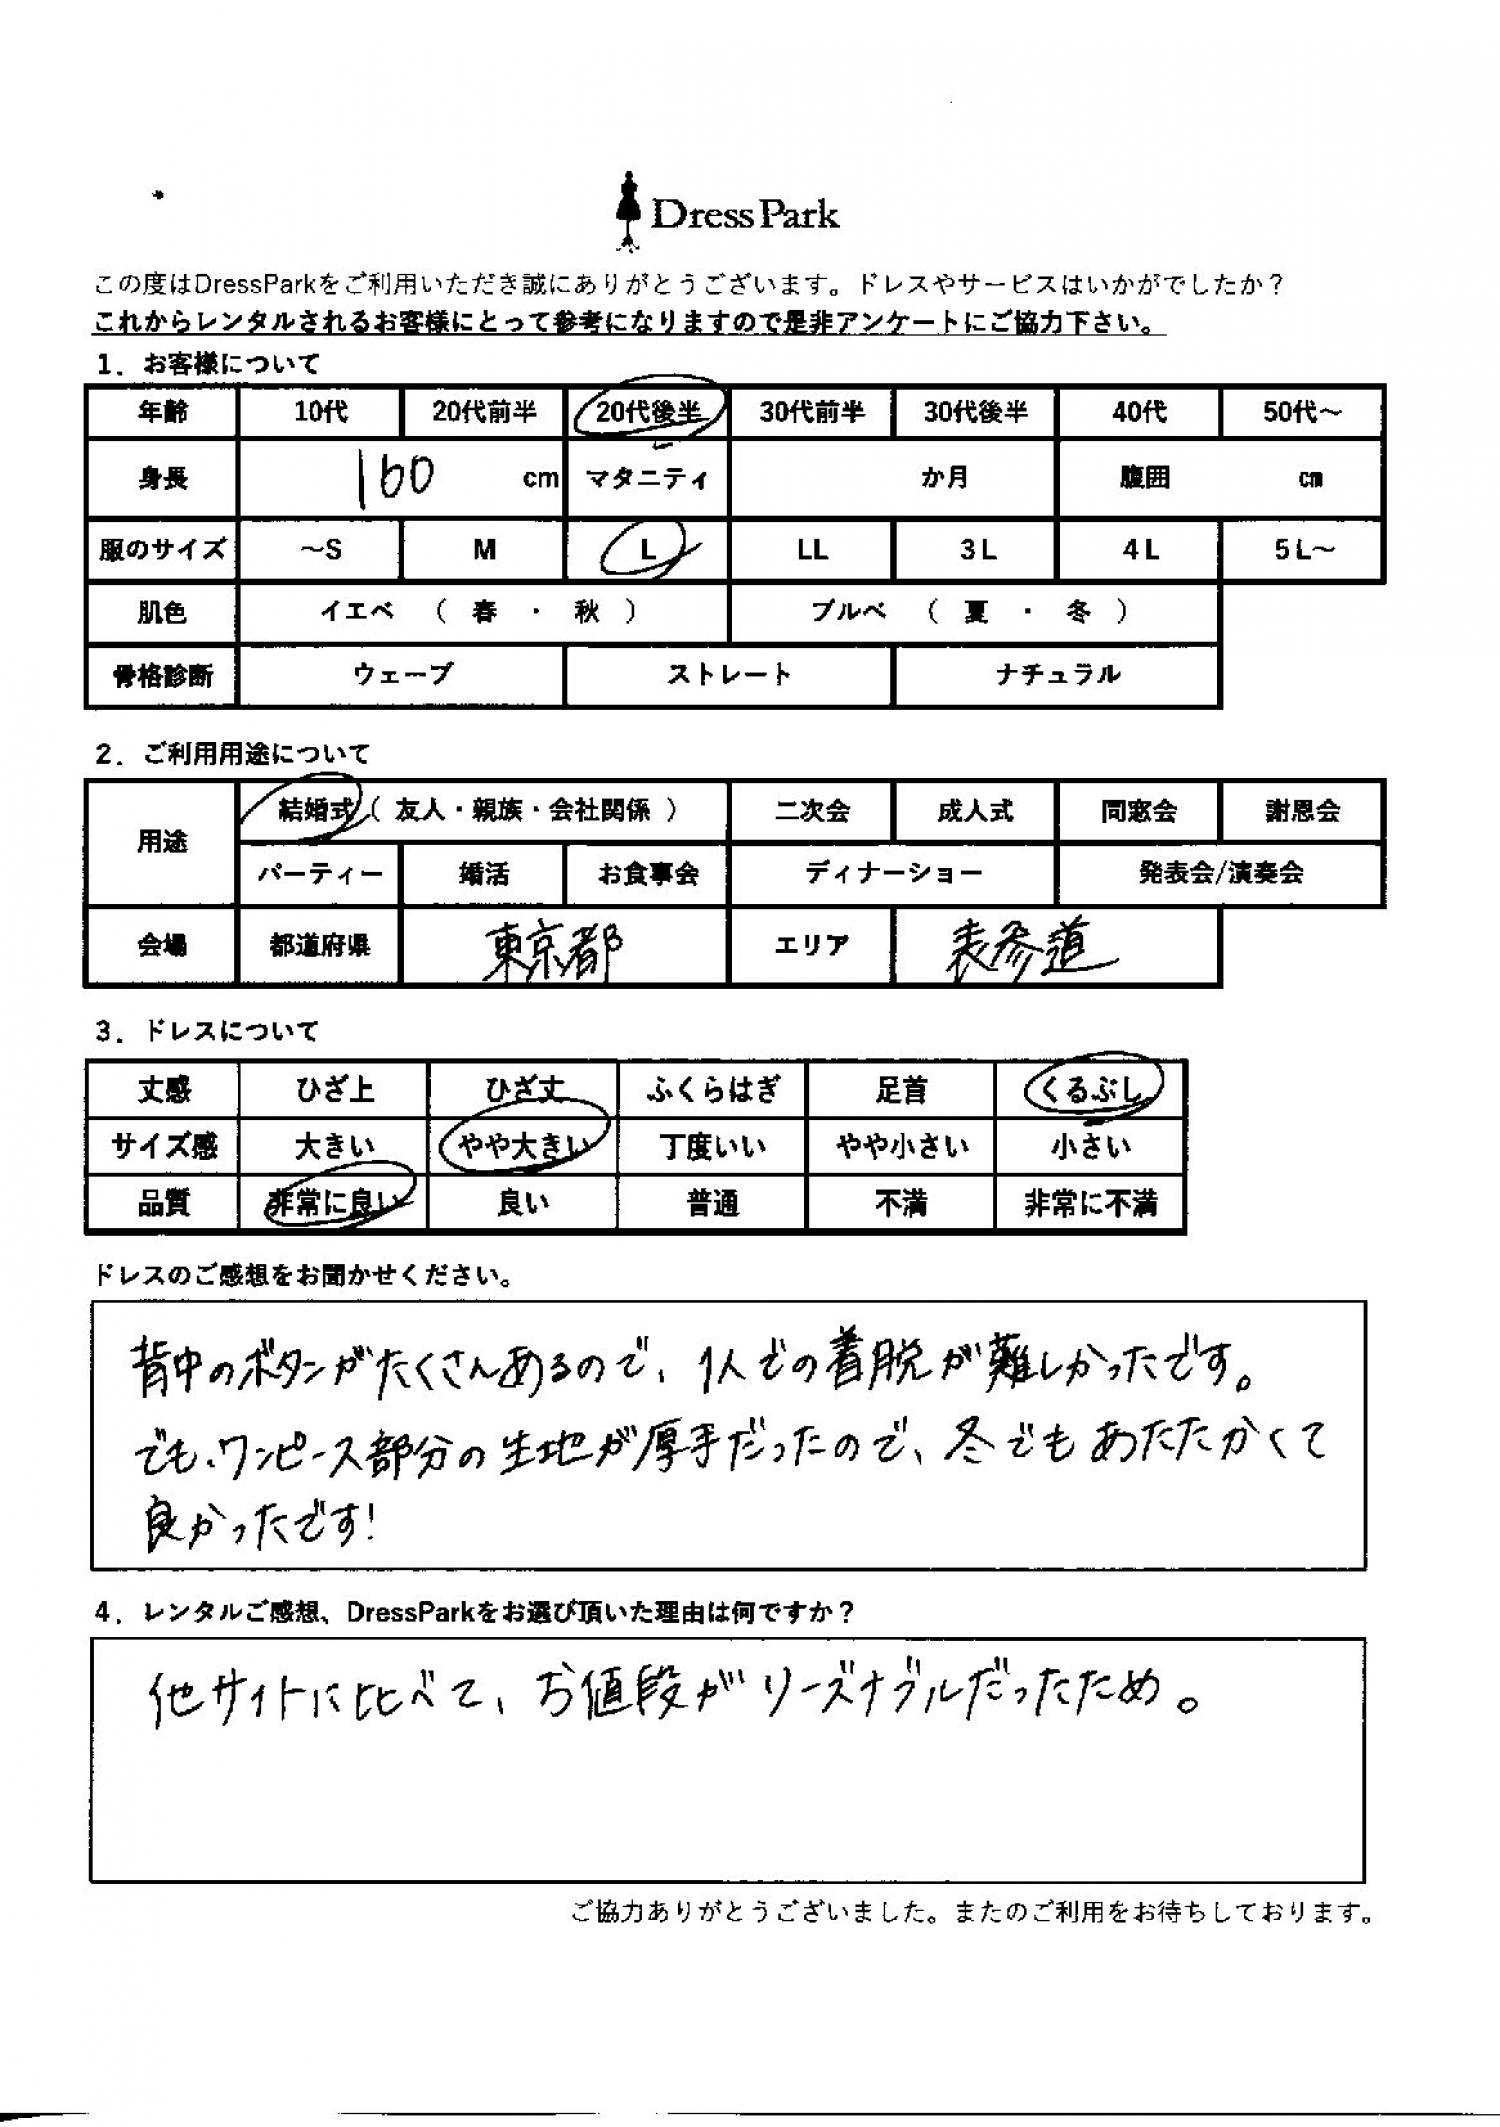 DressPark
この度はDressParkをご利用いただき誠にありがとうございます。ドレスやサービスはいかがでしたか？
これからレンタルされるお客様にとって参考になりますので是非アンケートにご協力下さい。
1．お客様について
年齢 10代 20代前半 20代後半 30代前半 30代後半 40代 50代～
身長 160 cm マタニティ か月 腹囲 ㎝
服のサイズ ～S M L LL 3L 4L 5L～
肌色 イエベ （ 春 ・ 秋 ） ブルベ （ 夏 ・ 冬 ）
骨格診断 ウェーブ ストレート ナチュラル
2．ご利用用途について
用途 結婚式（ 友人・親族・会社関係 ） 二次会 成人式 同窓会 謝恩会
パーティー 婚活 お食事会 ディナーショー 発表会/演奏会
会場 都道府県 東京都 エリア 表参道
3．ドレスについて
丈感 ひざ上 ひざ丈 ふくらはぎ 足首 くるぶし
サイズ感 大きい やや大きい 丁度いい やや小さい 小さい
品質 非常に良い 良い 普通 不満 非常に不満
ドレスのご感想をお聞かせください。
背中のボタンがたくさんあるので、1人での着脱が難しかったです。
でも、ワンピース部分の生地が厚手だったので、冬でもあたたかくて
良かったです!
4．レンタルご感想、DressParkをお選び頂いた理由は何ですか？
他サイトに比べて、お値段がリーズナブルだったため。
ご協力ありがとうございました。またのご利用をお待ちしております。